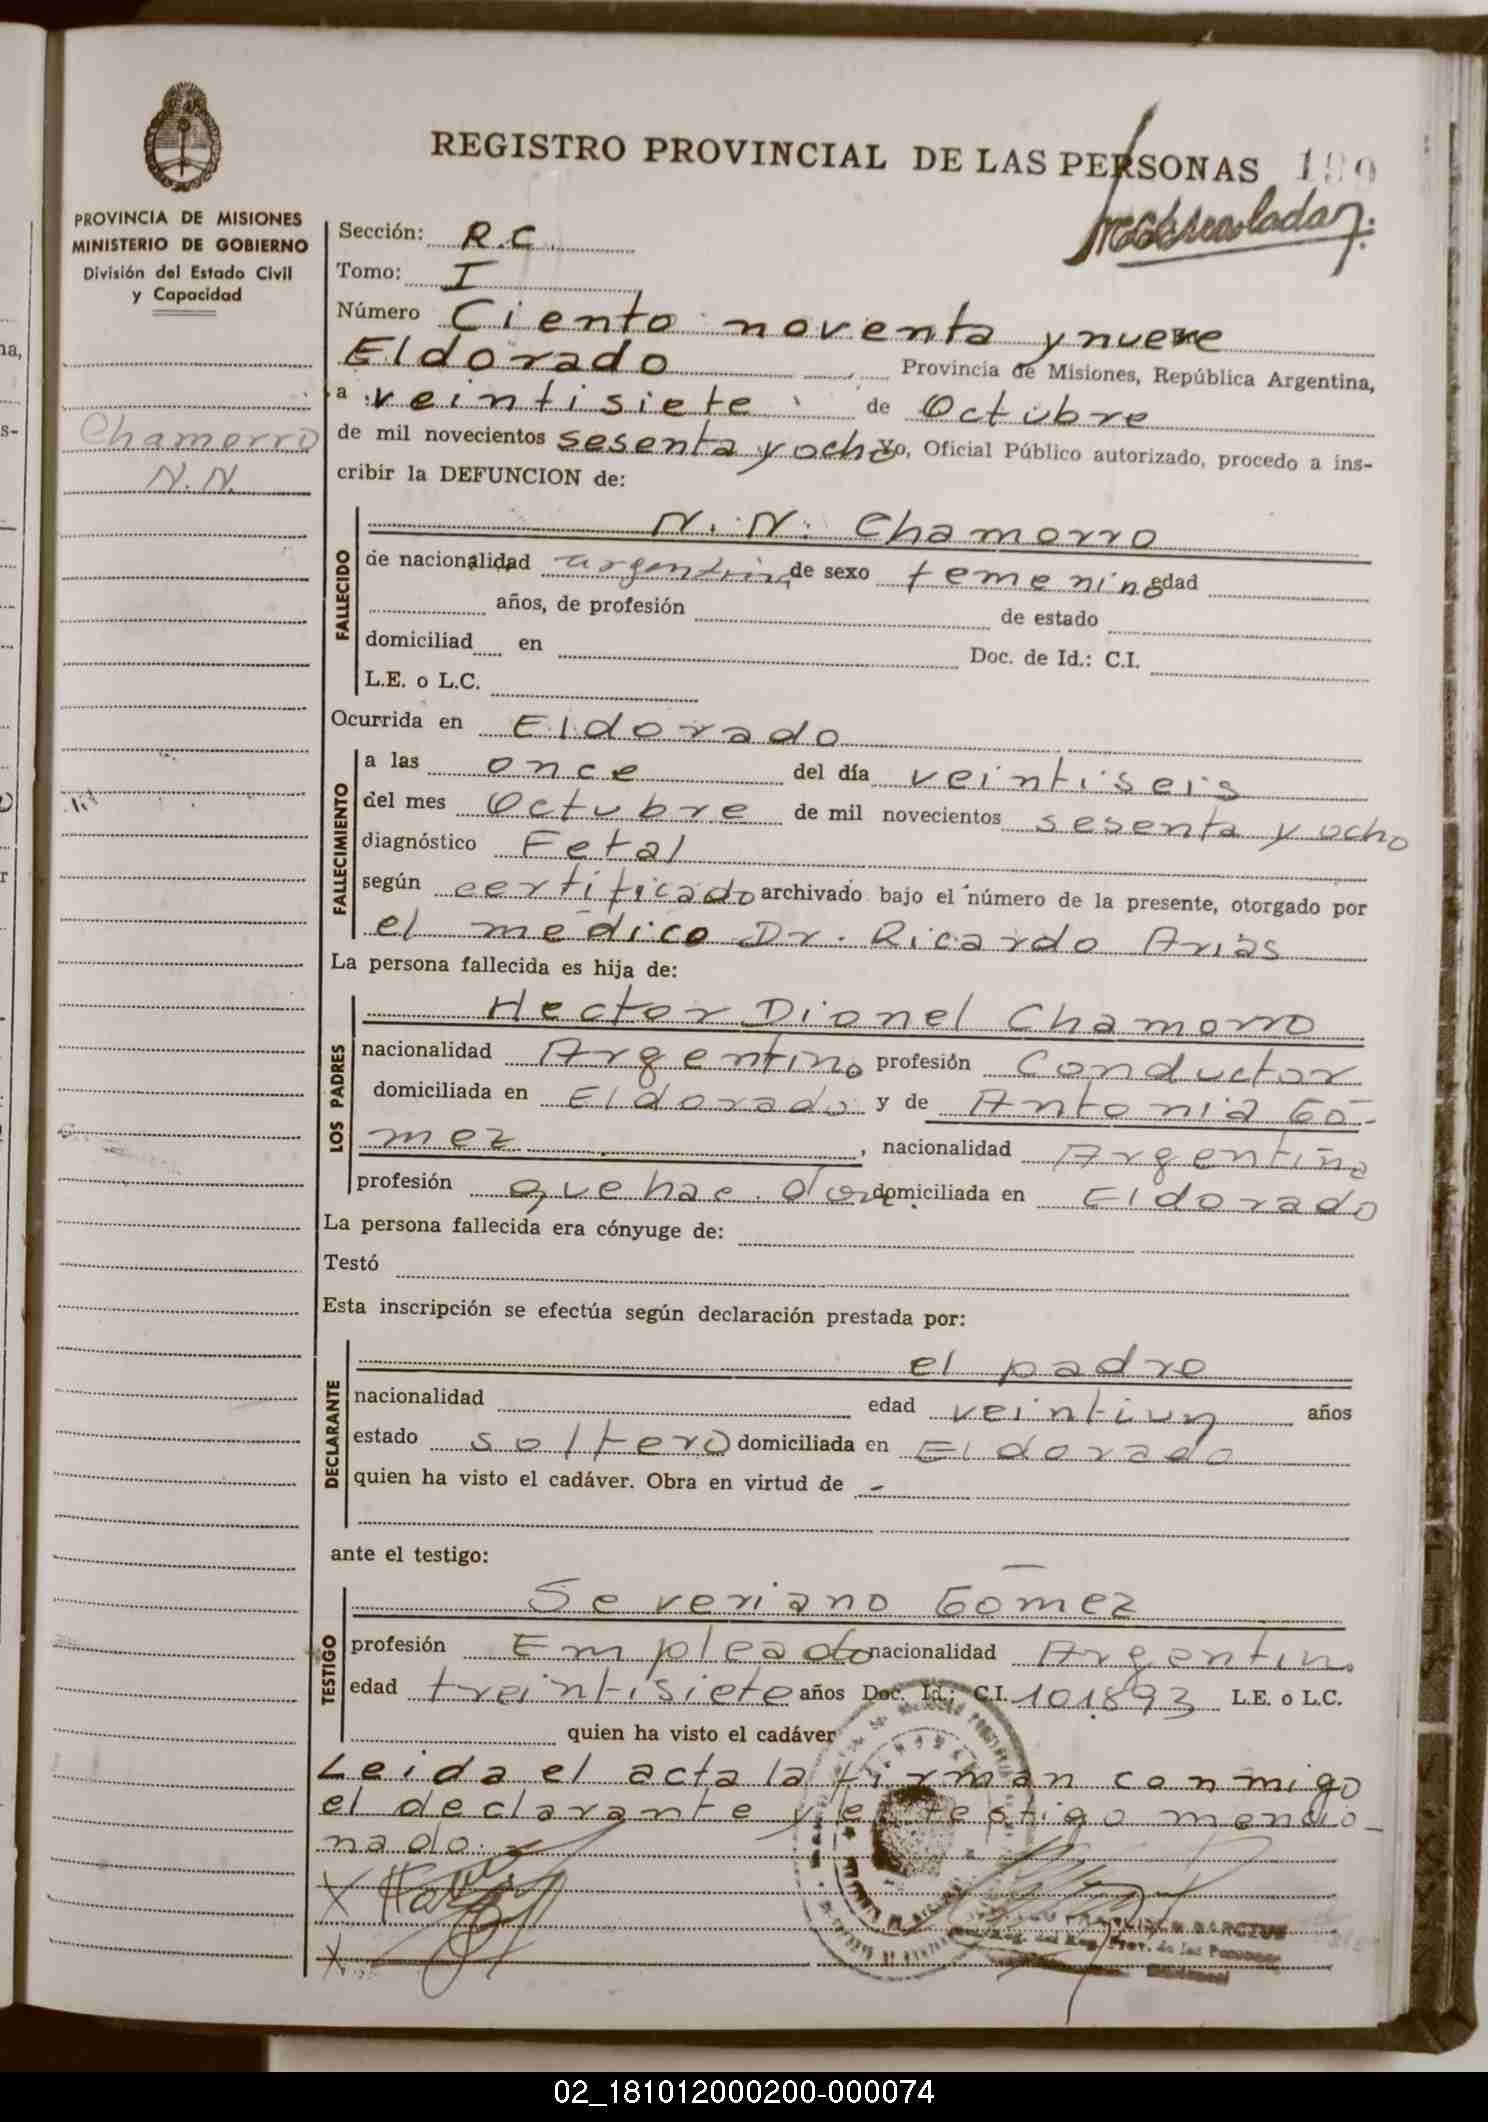 REGISTRO PROVINCIAL DE LAS PERSONAS
PROVINCIA DE MISIONES
MINISTERIO DE GOBIERNO
División del Estado Civil
y Capacidad
Chamorro
N.N.
Sección: R.C.
Tomo: I
Número Ciento noventa y nueve
Eldorado Provincia de Misiones, República Argentina,
a veintisiete de Octubre
de mil novecientos sesenta y ocho Yo, Oficial Público autorizado, procedo a ins-
cribir la DEFUNCION de:
FALLECIDO
N.N. Chamorro
de nacionalidad argentina de sexo femenino edad
años, de profesión de estado
domiciliad en Doc. de Id.: C.I.
L.E. o L.C.
Ocurrida en Eldorado
FALLECIMIENTO
a las once del día veintiseis
del mes Octubre de mil novecientos sesenta y ocho
diagnóstico Fetal
según certificado archivado bajo el número de la presente, otorgado por
el médico Dr. Ricardo Arias
La persona fallecida es hija de:
LOS PADRES
Hector Dionel Chamorro
nacionalidad Argentino profesión Conductor
domiciliada en Eldorado y de Antonia Gó-
mez, nacionalidad Argentina
profesión quehac. dom. domiciliada en Eldorado
La persona fallecida era cónyuge de:
Testó
Esta inscripción se efectúa según declaración prestada por:
DECLARANTE
el padre
nacionalidad edad veintiun años
estado soltero domiciliada en Eldorado
quien ha visto el cadáver. Obra en virtud de -
ante el testigo:
TESTIGO
Severiano Gómez
profesión Empleado nacionalidad Argentino
edad treintisiete años Doc. Id.: C.I. 101893 L.E. o L.C.
quien ha visto el cadáver
Leida el acta la firman conmigo
el declarante y el testigo mencio-
nado.
X
X
02_181012000200-000074